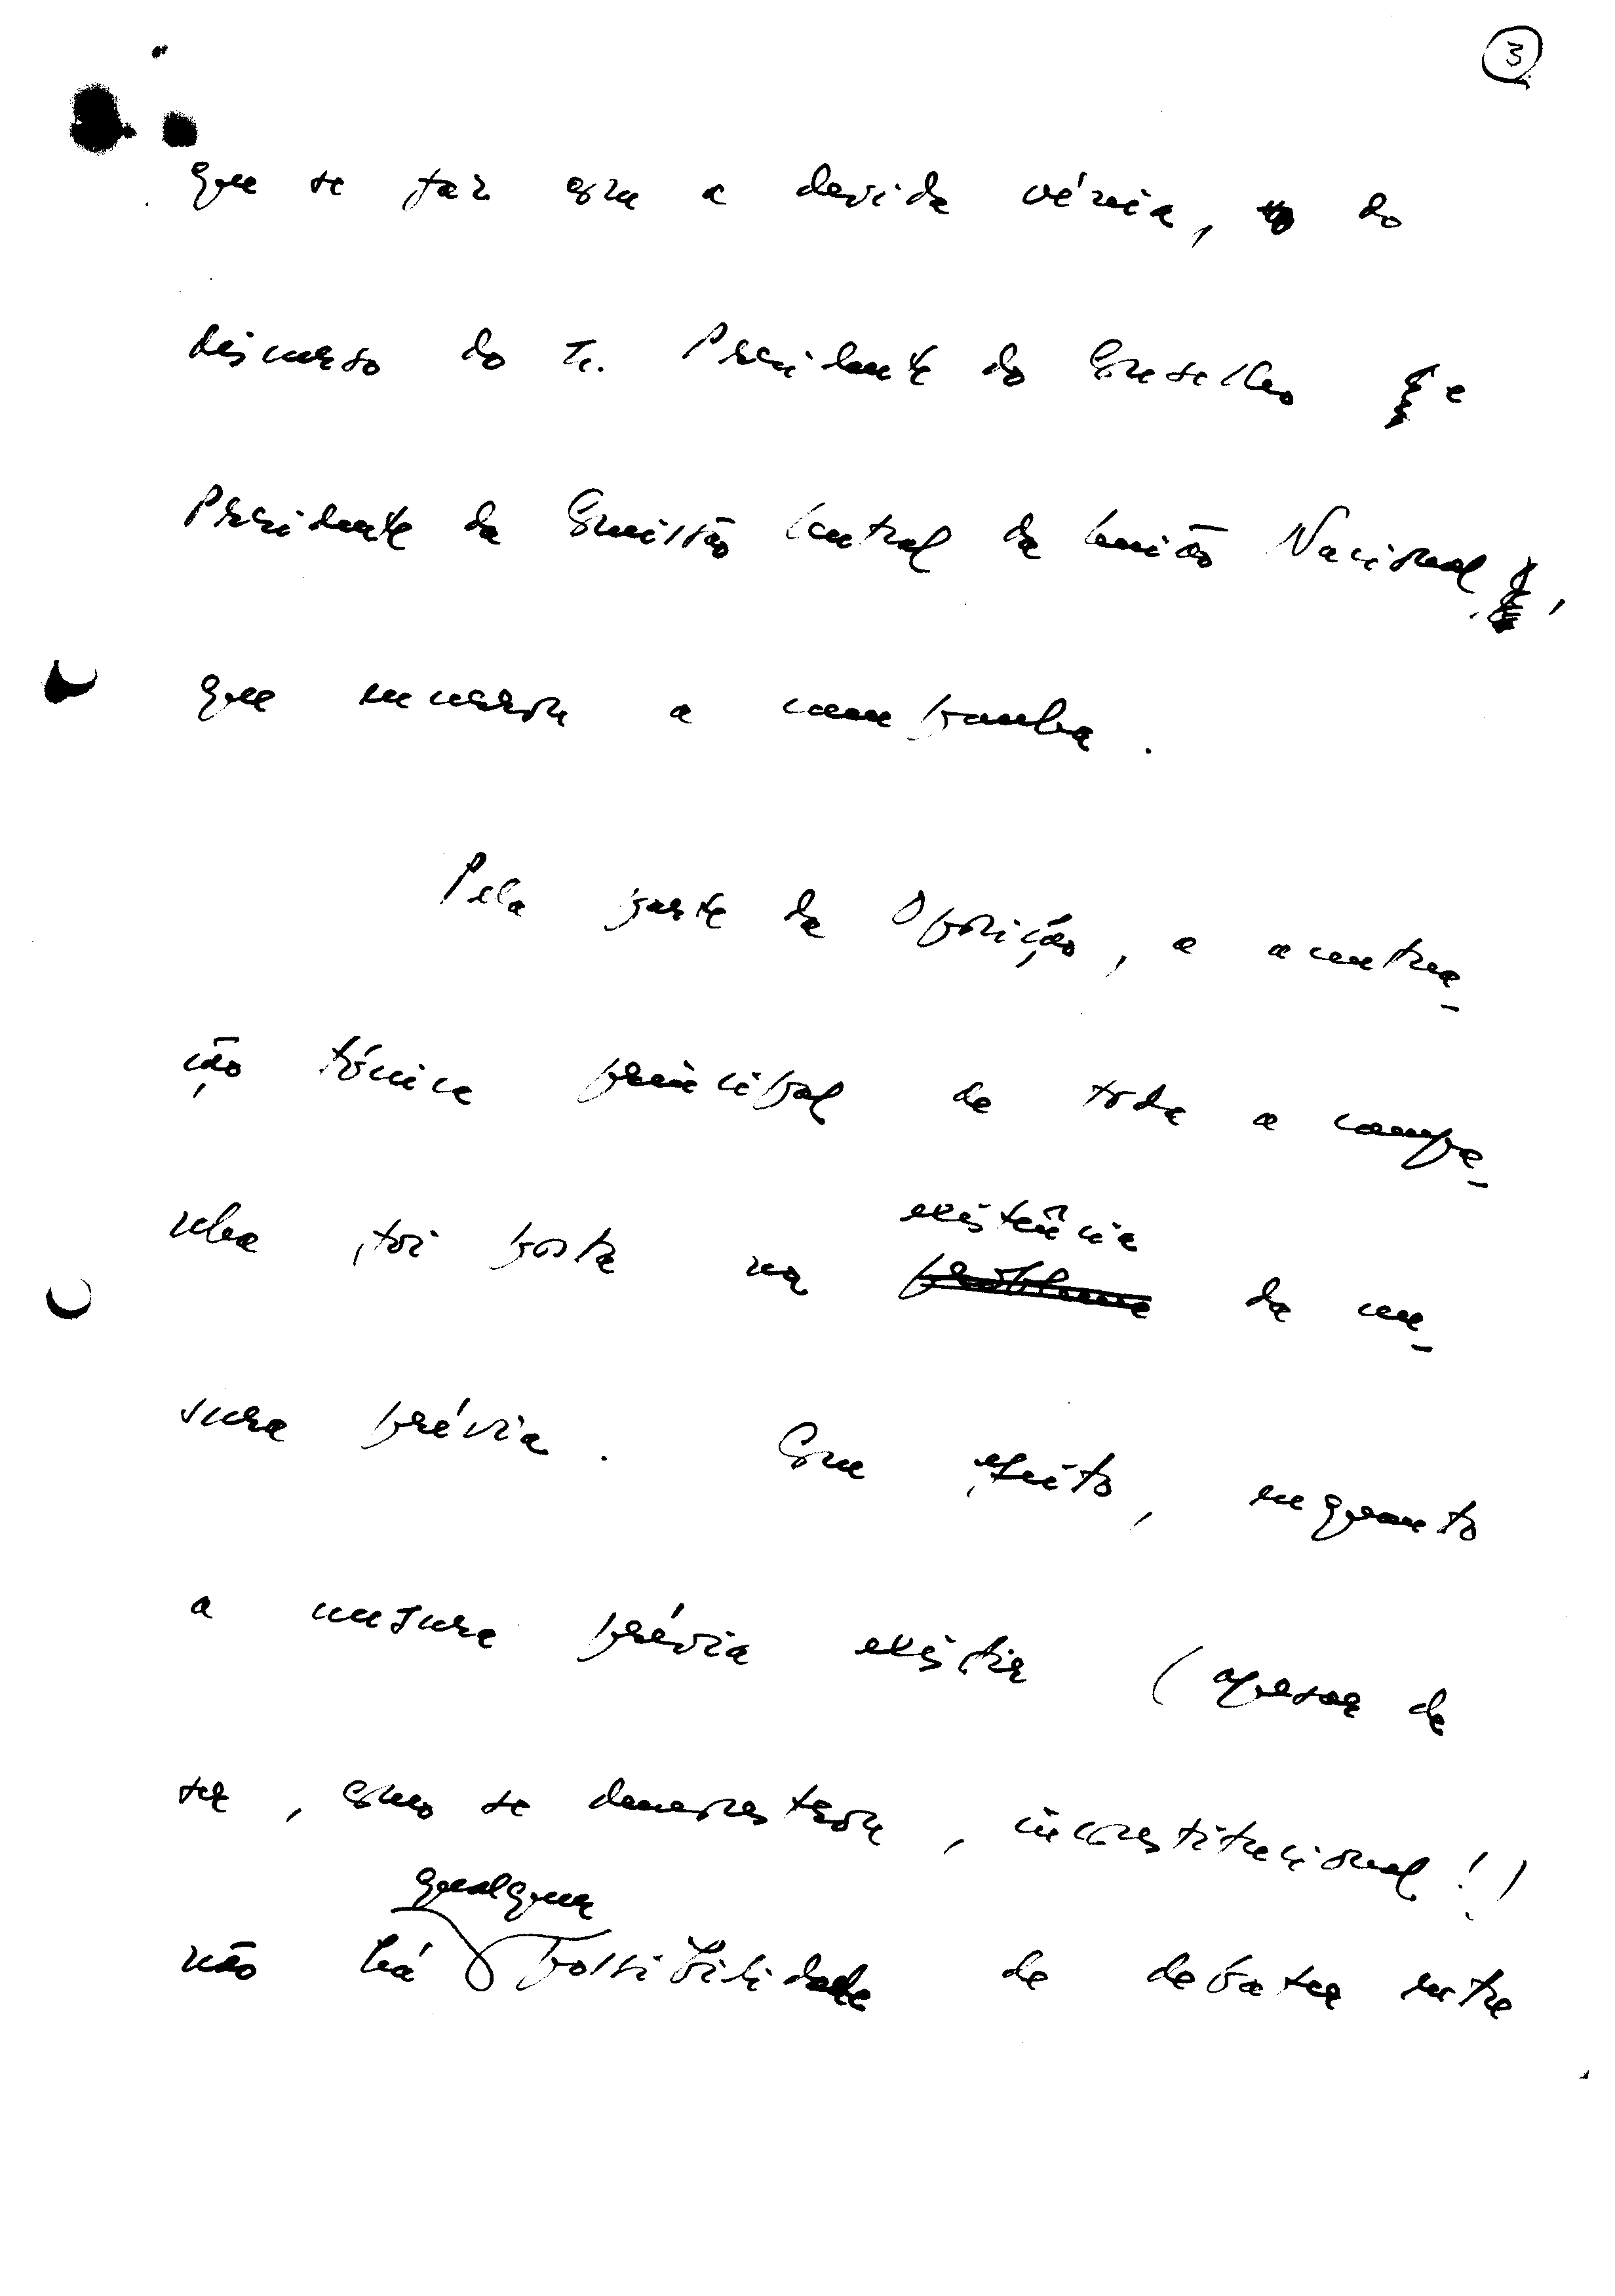 3
que se faz com a devida vénia, do
discurso do Sr. Presidente do Conselho e
Presidente da Comissão Central da União Nacional,
que encerrou a campanha.
Pela parte da Oposição, a acentua-
ção tónica principal de toda a campa-
nha foi posta na existência da cen-
problema
sura prévia. Com efeito, enquanto
a censura prévia existir (apesar de
ser, como se demonstrou, inconstitucional!)
qualquer
não há possibilidade de debater entre